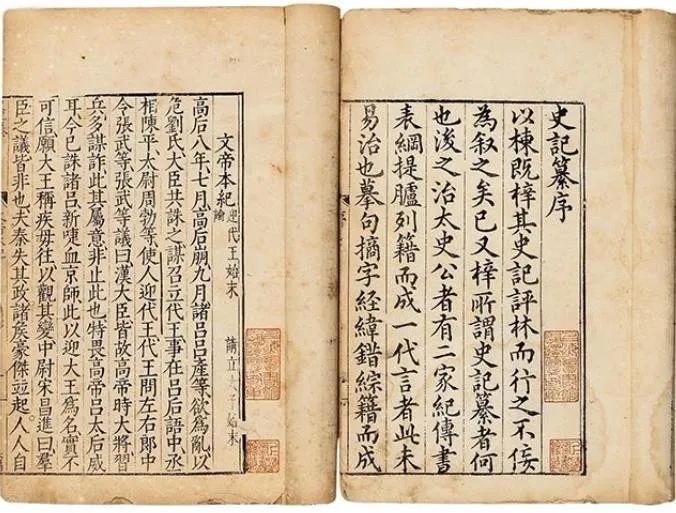 史記纂序
以棟既梓其史記評林而行之不佞
為叙之矣已又梓所謂史記纂者何
也後之治太史公者有二家紀傳書
表綱提臚列籍而成一代言者此未
易治也摹句摘字經緯錯綜籍而成
文帝本紀 迎代王始末 請立 始末
高后八年七月高后崩九月諸呂呂產等欲為亂以
危劉氏大臣共誅之謀召立代王事在呂后語中丞
相陳平太尉周勃等使人迎代王代王問左右郎中
令張武等張武等議曰漢大臣皆故高帝時大將習
兵多謀詐此其屬意非止此也特畏高帝呂太后威
耳今已誅諸呂新啑血京師此以迎大王為名實不
可信願大王稱疾毋往以觀其變中尉宋昌進曰羣
臣之議皆非也夫秦失其政諸矦豪傑竝起人人自